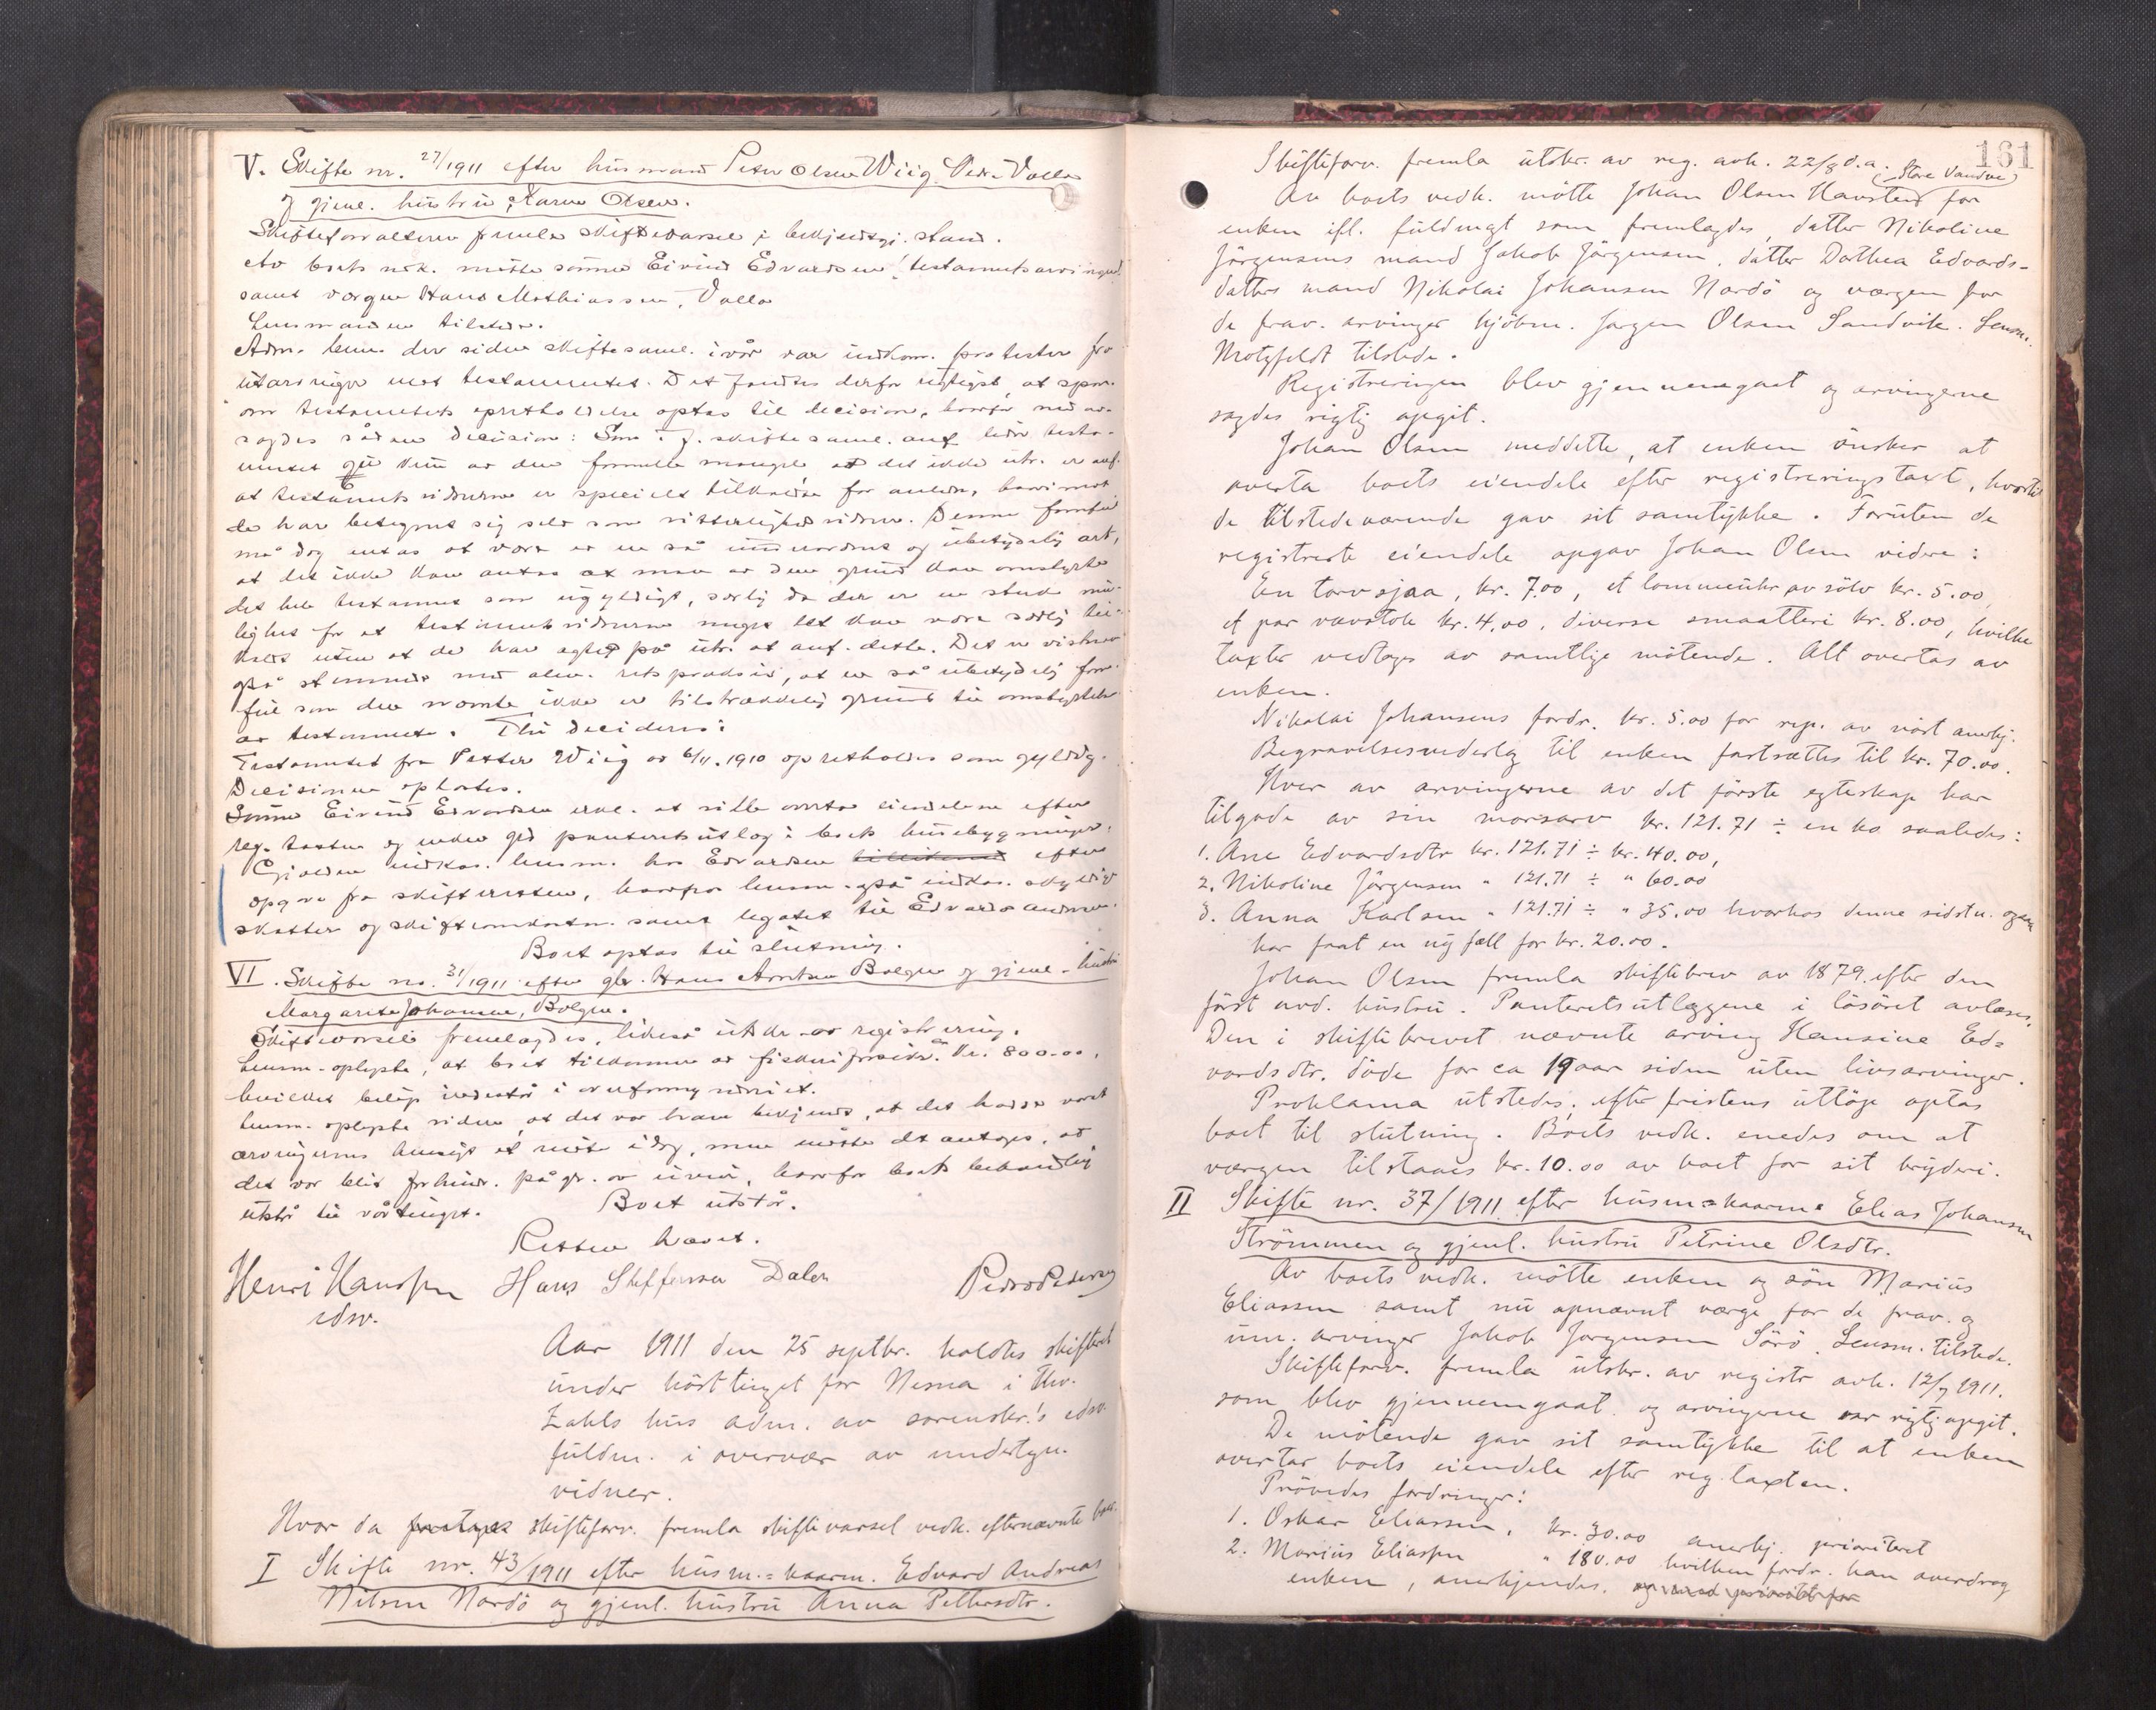 V. Skifte nr. 27/1911 efter husmand Peter Olsen Wiig Vedr. Valla
og gjenl. hustru Karen Olsen.
Skifteforvalteren fremla skiftevarsel i bekjendtgj. stand.
Av boets vedk. møtte sønnen Eivind Edvardsen (testamentsarvingen)
samt værgen Hans Mathiassen, Valla
Lensmanden tilstede.
Adm. bem. der siden skiftesaml. i vår var indkom. protester fra
utarvinger mot testamentet. Det fandtes derfor rigtigst, at spm.
om testamentets opretholdelse optas til decision, hvorfor
sagdes sådan decision: Som i f. skiftesaml. anf. lider testa-
mentet av den formelle mangel at det ikke utr. er anf.
at testamentsvidnerne er specielt tilkaldte for anledn., hvorimot
de har betegnet sig selv som vitterlighedsvidner. Denne formfeil
må dog antas at være av en så underordnet og ubetydelig art,
at det ikke kan antas at man av den grund kan omstyrte
det hele testament som ugyldigt, særlig da der er en stor mu-
lighet for at testamentsvidnerne meget let kan være særlig til-
kaldt uten at de har agtet på utr. at anf. dette. Det er vistnok
også stemmende med alm. retspraksis, at en så ubetydelig form-
feil som den nævnte ikke er tilstrækkelig grund til omstyrtelse
av testamentet. Thi decideres:
Testamentet fra Petter Wiig av 6/11. 1910 opretholdes som gyldig.
Decisionen oplæstes.
Sønnen Eivind Edvardsen erkl. at ville overta eiendelene efter
reg. taxten og under god panteretsutlæg i boets husebygninger.
Gjælden indkas. lensm. hos Edvardsen efter
opgave fra skifteretten, hvorfra lensm. også indkas. skyldige
skatter og skifteomkostn. samt legatet til Edvards andre.
Boet optas til slutning.
VI. Skifte nr. 31/1911 efter gbr. Hans Arntsen Bolgen og gjenl. hustru
Margarete Johanne, Bolgen.
Skiftevarsel fremlagdes, likeså utskr. av registrering.
Lensm. oplyste, at boet tilkommer av fiskeriforsikr. kr. 800.00,
hvilket beløp indestår i overformynderiet.
Lensm. oplyste videre, at det var ham bekjendt, at det hadde været
arvingernes hensigt at møte idag, men måtte det antages, at
det var blit forhindr. på gr. av uveir, hvorfor boets behandling
utstår til vårtinget. Boet utstår.
Retten hævet.
Henri Hanssen Hans Steffensen Dalen Peder Pedersen
edsv.
Aar 1911 den 25 septbr. holdtes skifteret
under høsttinget for Nesna i Thv.
Zahls hus adm. av sorenskr.'s edsv.
fuldm. i overvær av undertegn.
vidner.
Hvor da foretages skifteforv. fremla skiftevarsel vedk. efternævnte boer.
I Skifte nr. 43/1911 efter husm.=kaarm. Edvard Andreas
Nilsen Nordø og gjenl. hustru Anna Pettersdtr.
161
Skifteforv. fremla utskr. av reg. avh. 22/8 d.a.
(Store Vandve)
Av boets vedk. møtte Johan Olsen Havsten for
enken ifl. fuldmagt som fremlagdes, datter Nikoline
Jörgensens mand Jakob Jörgensen, datter Dorthea Edvards-
datters mand Nikolai Johansen Nordö og værgen for
de frav. arvinger kjöbm. Jørgen Olsen Sandvik. Lensm.
Motzfeldt tilstede.
Registreringen blev gjennemgaat og arvingerne
sagdes rigtig opgit.
Johan Olsen meddelte, at enken önsker at
overta boets eiendele efter registreringstaxt, hvortil
de tilstedeværende gav sit samtykke. Foruten de
registrerte eiendele opgav Johan Olsen videre:
En torvsjaa, kr. 7.00, et lommeuhr av sölv kr. 5.00,
et par vævstole kr. 4.00, diverse smaatteri kr. 8.00, hvilke
taxter vedtoges av samtlige mötende. Alt overtas av
enken.
Nikolai Johansens fordr. kr. 5.00 for rep. av nöst anerkj.
Begravelsesvederlag til enken fastsættes til kr. 70.00.
Hver av arvingerne av det förste egteskap har
tilgode av sin morsarv kr. 121.71 ÷ en ko saaledes:
1. Ane Edvardsdtr kr. 121.71 ÷ kr. 40.00,
2. Nikoline Jörgensen " 121.71 ÷ " 60.00
3. Anna Karlsen " 121.71 ÷ " 35.00 hvorhos denne sidstn. ogsaa
har faat en ny fæll for kr. 20.00.
Johan Olsen fremla skiftebrev av 1879 efter den
först avd. hustru. Panteretsutlæggene i lösöret avlæses.
Den i skiftebrevet nævnte arving Hansine Ed=
vardsdtr. döde for ca 19 aar siden uten livsarvinger.
Proklama utstedes, efter fristens utløp optas
boet til slutning. Boets vedk. enedes om at
værgen tilstaaes kr. 10.00 av boet for sit bryderi.
II Skifte nr. 37/1911 efter husm=kaarm. Elias Johansen
Strömmen og gjenl. hustru Petrine Olsdtr.
Av boets vedk. mötte enken og sön Marius
Eliassen samt nu opnævnt værge for de frav. og
um. arvinger Jakob Jorgensen Sörö. Lensm. tilstede.
Skifteforv. fremla utskr. av registr avh. 12/7 1911.
som blev gjennemgaat og arvingerne var rigtig opgit.
De mötende gav sit samtykke til at enken
overtar boets eiendele efter reg. taxten.
Prövedes fordringer:
1. Oskar Eliassen, kr. 30.00 anerkj. prioritert
2. Marius Eliassen " 180.00 hvilken fordr. han overdrog
enken, anerkjendes. og med prioritet for